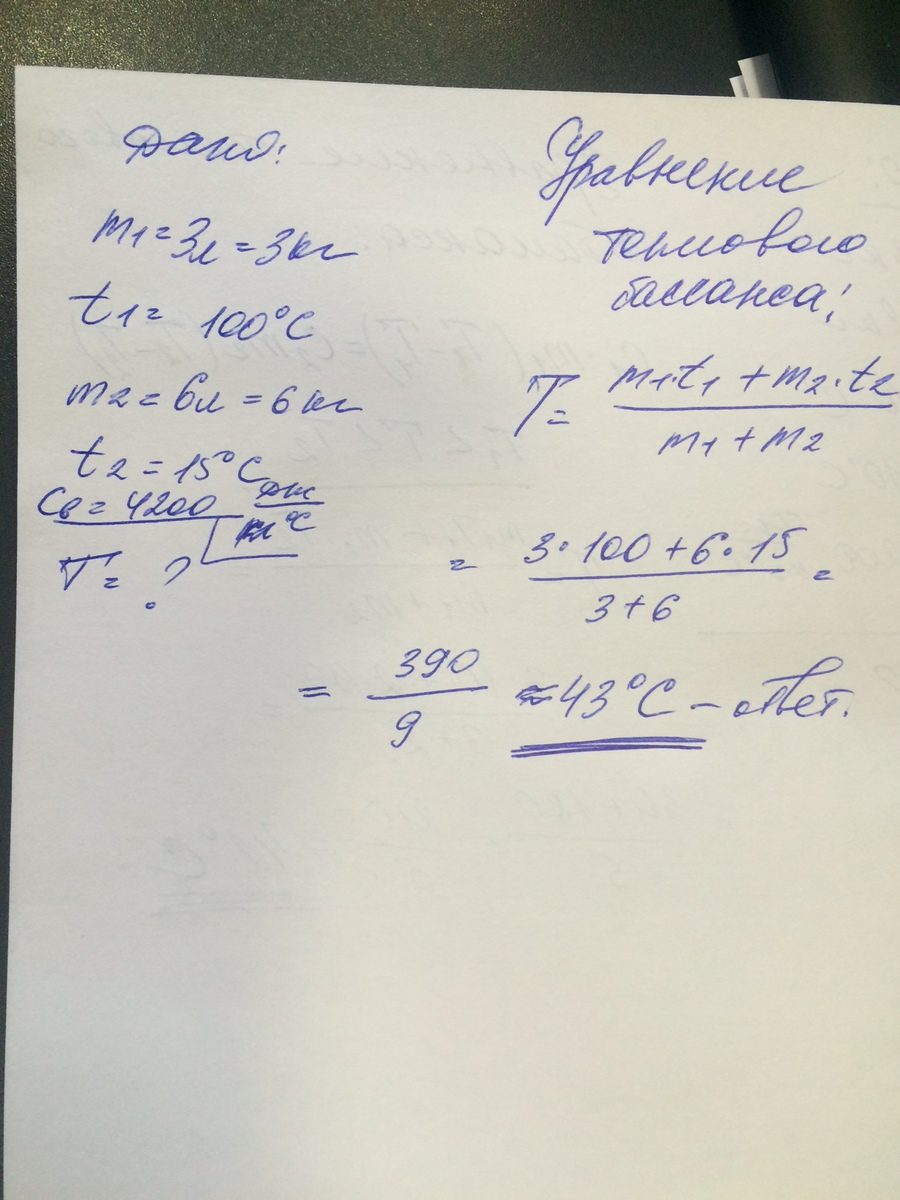 Дано:
m1 = 3л = 3кг
t1 = 100°C
m2 = 6л = 6 кг
t2 = 15°C
Cв = 4200 дж/кг°C
T = ?
Уравнение
теплового
баланса:
T = (m1·t1 + m2·t2)/(m1 + m2)
= (3·100 + 6·15)/(3 + 6) =
= 390/9 ≈ 43°C – ответ.